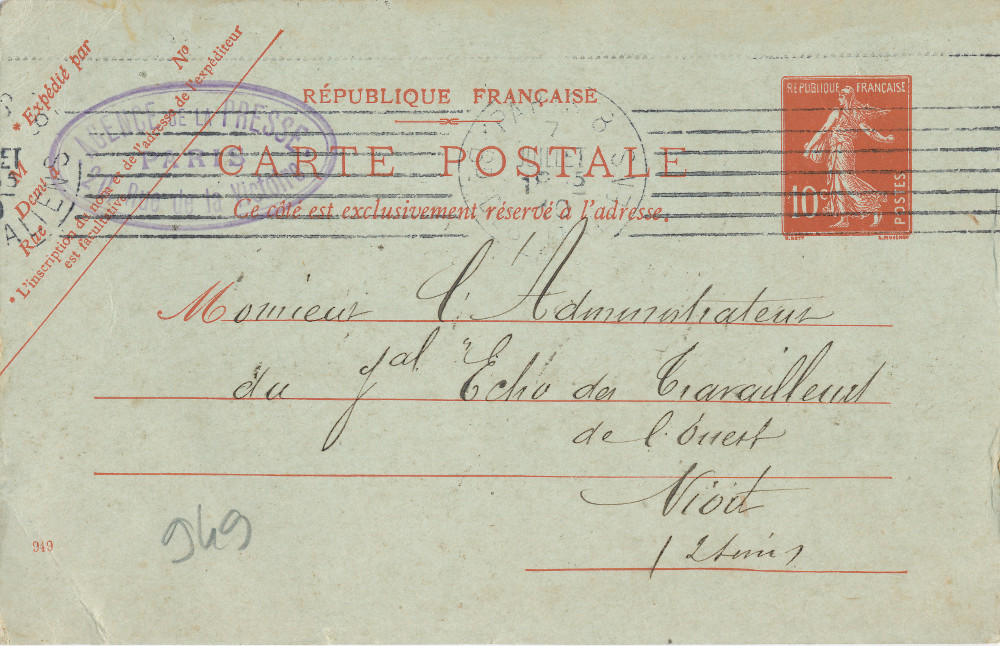 * Expédié par
M
Demeurant
Rue
No
* L'inscription du nom et de l'adresse de l'expéditeur
est facultative.
AGENCE DE LA PRESSE
PARIS
Rue de la Victoire
RÉPUBLIQUE FRANÇAISE
CARTE POSTALE
Ce côté est exclusivement réservé à l'adresse.
RÉPUBLIQUE FRANÇAISE
10c
POSTES
7
JUILLET
Monsieur l'Administrateur
du Jal "Echo des Travailleurs
de l'Ouest
Niort
2 Sèvres
949
949